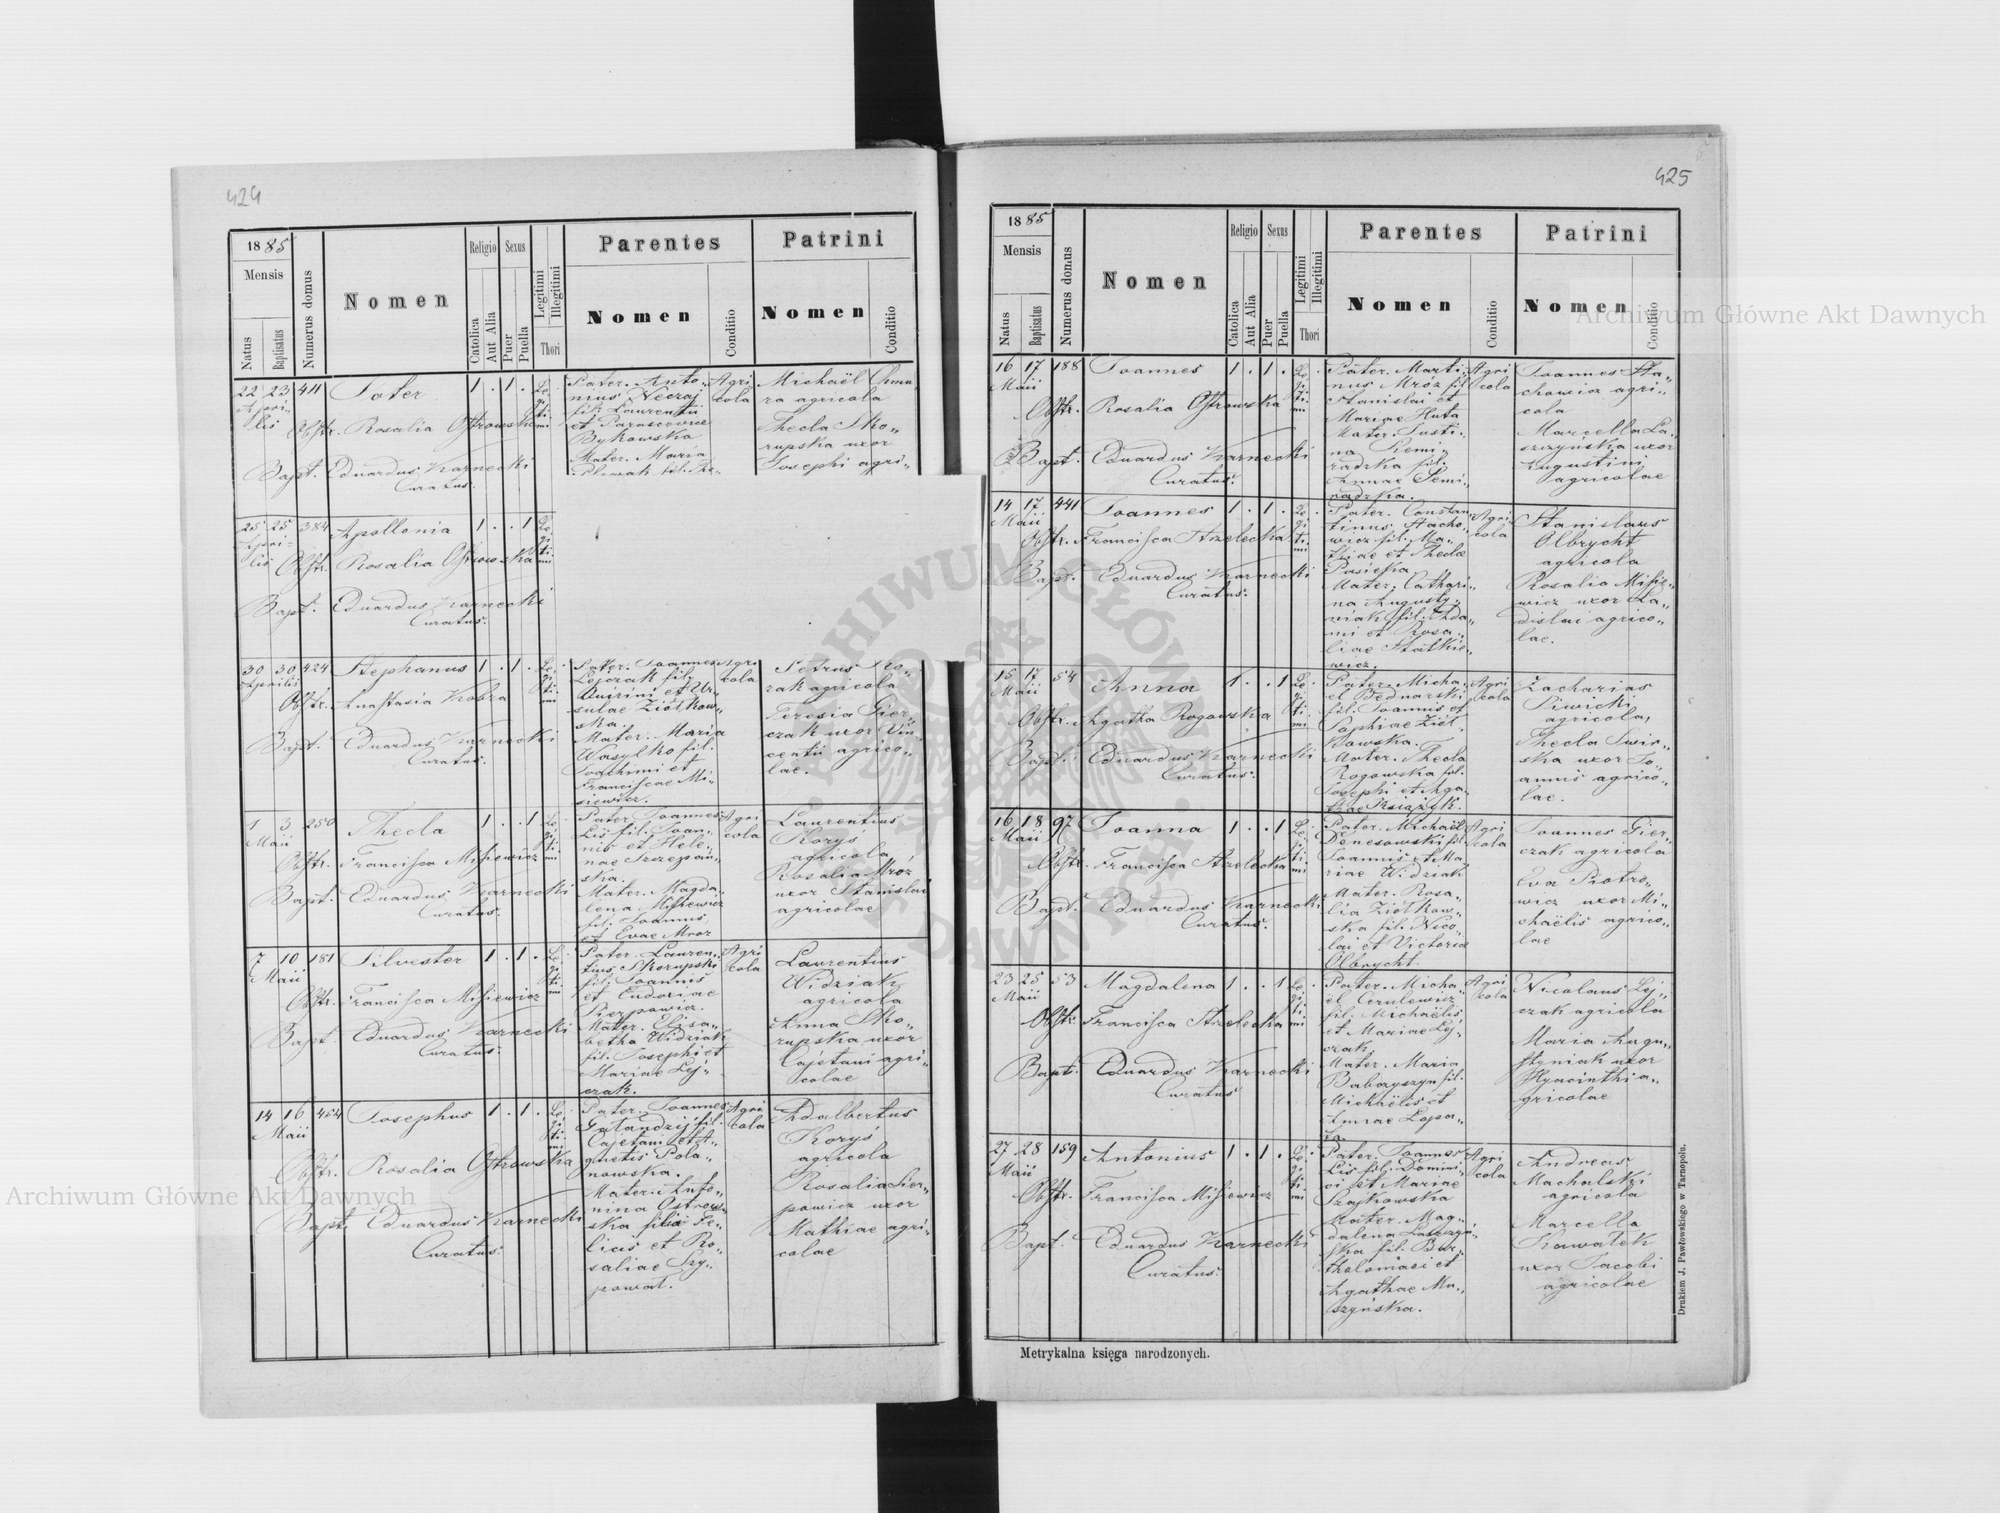 424
1885
Mensis
Natus
Baptisatus
Numerus domus
Nomen
Religio
Catolica
Aut Alia
Sexus
Puer
Puella
Legitimi
Illegitimi
Thori
Parentes
Nomen
Conditio
Patrini
Nomen
Conditio
22 23 411 Soter 1 . 1 .
Aprilis
Obstr. Rosalia Ostrowska
Bapt. Eduardus Karnecki
Curatus.
Pater. Anto„
nius Neczaj
fil. Laurentii
et Parascevice
Bykowska
Mater. Maria
Agri
cola
Michaël Chmu
ra agricola
Thecla Sko„
rupska uxor
Josephi agri„
25 25 384 Apollonia 1 . . 1
Aprilis
Obstr. Rosalia Ostrowska
Bapt. Eduardus Karnecki
Curatus.
30 30 424 Stephanus 1 . 1 .
Aprilis
Obstr. Anastasia Kobza
Bapt. Eduardus Karnecki
Curatus.
Pater. Joannes
Lejczak fil.
Quirini et Ur„
sulae Ziółkow„
ska.
Mater. Maria
Wasylko fil.
Joachimi et
Franciscae Mi„
siewicz.
Agri
cola
Petrus Ko„
zak agricola
Teresia Gier„
czak uxor Vin„
centii agrico„
lae.
1 3 250 Thecla 1 . . 1
Maii
Obstr. Francisca Misiewicz
Bapt. Eduardus Karnecki
Curatus.
Pater Joannes
Lis fil. Joan„
nis et Hele„
nae Szczepań„
ska.
Mater. Magda„
lena Misiewicz
fil. Joannis
et Evae Mroz
Agri
cola
Laurentius
Koryś
agricola
Rosalia Mróz
uxor Stanislai
agricolae
7 10 181 Silvester 1 . 1 .
Maii
Obstr. Francisca Misiewicz
Bapt. Eduardus Karnecki
Curatus.
Pater. Lauren„
tius Skorupski
fil. Joannis
et Eudoxiae
Pierpowicz.
Mater. Elisa„
betha Widziak
fil. Josephi et
Mariae Lej„
czak.
Agri
cola
Laurentius
Widziak
agricola
Anna Sko„
rupska uxor
Cajetani agri„
colae
14 16 454 Josephus 1 . 1 .
Maii
Obstr. Rosalia Ostrowska
Bapt. Eduardus Karnecki
Curatus.
Pater. Joannes
Galandzij fil.
Cajetani et A„
gnetis Pola„
nowska.
Mater. Anto„
nina Ostrow„
ska filia Fe„
licis et Ro„
saliae Szy„
powat.
Agri
cola
Adalbertus
Koryś
agricola
Rosalia Sier„
powicz uxor
Mathiae agri„
colae
425
1885
Mensis
Natus
Baptisatus
Numerus domus
Nomen
Religio
Catolica
Aut Alia
Sexus
Puer
Puella
Legitimi
Illegitimi
Thori
Parentes
Nomen
Conditio
Patrini
Nomen
Conditio
16 17 188 Joannes 1 . 1 .
Maii
Obstr. Rosalia Ostrowska
Bapt. Eduardus Karnecki
Curatus.
Pater. Marti„
nus Mróz fil.
Stanislai et
Mariae Huta
Mater. Justi„
na Siemi„
radzka fil.
Annae Semi„
radzka.
Agri
cola
Joannes Sta„
chowicz agri„
cola
Marcella La„
szczyńska uxor
Augustini
agricolae
14 17 441 Joannes 1 . 1 .
Maii
Obstr. Francisca Strzelecka
Bapt. Eduardus Karnecki
Curatus.
Pater. Constan
tinus Stacho„
wicz fil. Ma„
thiae et Theclae
Pasieka
Mater. Cathari„
na Augusty„
niak fil. Ada„
mi et Rosa„
liae Statkie„
wicz.
Agri
cola
Stanislaus
Olbrycht
agricola
Rosalia Misie„
wicz uxor La„
dislai agrico„
lae.
15 17 54 Anna 1 . . 1
Maii
Obstr. Agatha Rogowska
Bapt. Eduardus Karnecki
Curatus.
Pater. Micha„
el Bednarski
fil. Joannis et
Sophiae Ziół„
kowska.
Mater. Thecla
Rogowska fil.
Josephi et Aga„
thae Książyk.
Agri
cola
Zacharias
Siwicki
agricola,
Thecla Swir„
ska uxor Jo„
annis agrico„
lae.
16 18 97 Joanna 1 . . 1
Maii
Obstr. Francisca Strzelecka
Bapt. Eduardus Karnecki
Curatus.
Pater. Michaël
Denesowski fil.
Joannis et Ma„
riae Widziak
Mater. Rosa„
lia Ziółkow„
ska fil. Nico„
lai et Victoriae
Olbrycht.
Agri
cola
Joannes Gier„
czak agricola
Eva Piotro„
wicz uxor Mi„
chaëlis agrico„
lae
23 25 53 Magdalena 1 . . 1
Maii
Obstr. Francisca Strzelecka
Bapt. Eduardus Karnecki
Curatus
Pater. Micha„
el Cerulewicz
fil. Michaëlis
et Mariae Lej„
czak.
Mater. Maria
Babaryszyn fil.
Michaëlis et
Annae Lopa„
ta.
Agri
cola
Nicolaus Lej„
czak agricola
Maria Augu„
styniak uxor
Hyacinthi a„
gricolae
27 28 159 Antonius 1 . 1 .
Maii
Obstr. Francisca Misiewicz
Bapt. Eduardus Karnecki
Curatus.
Pater. Joannes
Lis fil. Domini„
ci et Mariae
Szajkowska
Mater. Mag„
dalena Laszczyń„
ska fil. Bar„
tholomaei et
Agathae Mu„
szyńska.
Agri
cola
Andreas
Machalski
agricola
Marcella
Kawalek
uxor Jacobi
agricolae
Metrykalna księga narodzonych.
Drukiem J. Pawłowskiego w Tarnopolu.
Archiwum Główne Akt Dawnych
Archiwum Główne Akt Dawnych